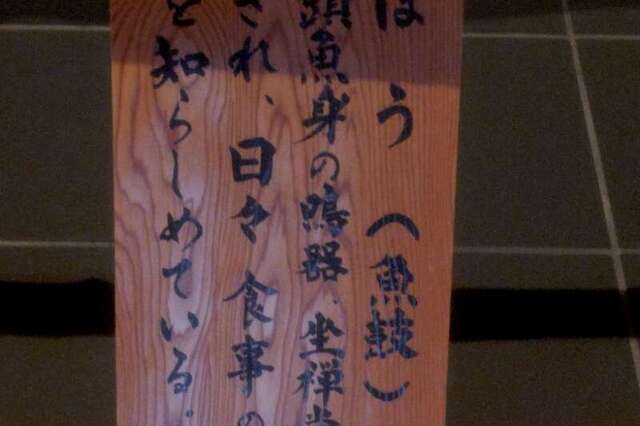 ほう（魚鼓）
頭魚身の鳴器、坐禅堂
され、日々食事の
を知らしめている。